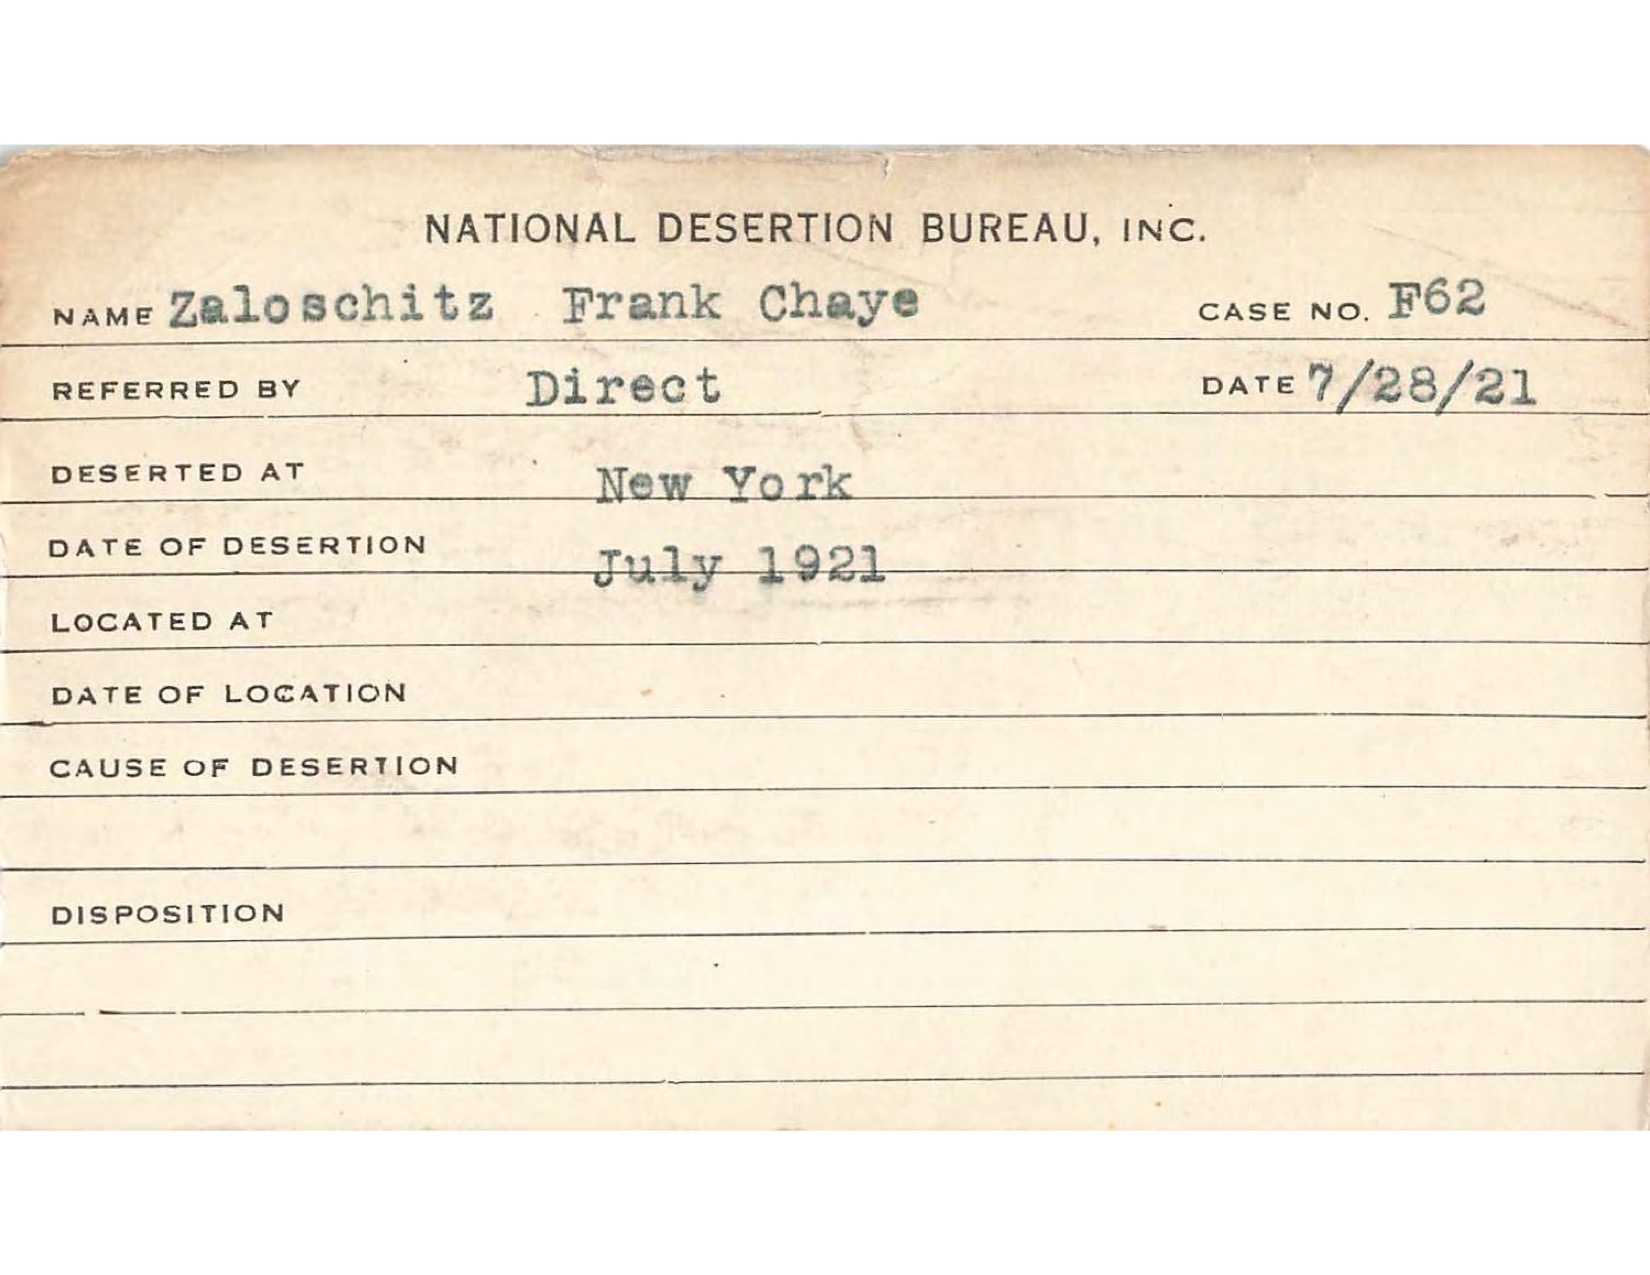 NATIONAL DESERTION BUREAU, INC.
NAME Zaloschitz Frank Chaye CASE NO. F62
REFERRED BY Direct DATE 7/28/21
DESERTED AT New York
DATE OF DESERTION July 1921
LOCATED AT
DATE OF LOCATION
CAUSE OF DESERTION
DISPOSITION